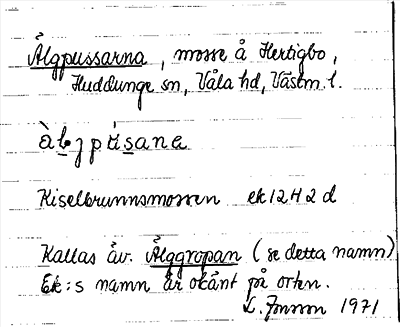 Älgpussarna, mosse å Hertigbo,
Huddunge sn, Våla hd, Västm. l.
Kiselbrunnsmossen ek 12 H 2 d
Kallas äv. Älggropan (se detta namn)
Ek:s namn är okänt på orten.
L. Jonson 1971